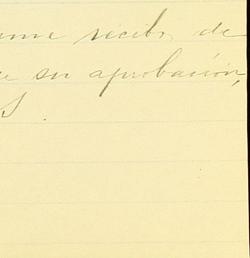 recibo de
su aprobación,
S.